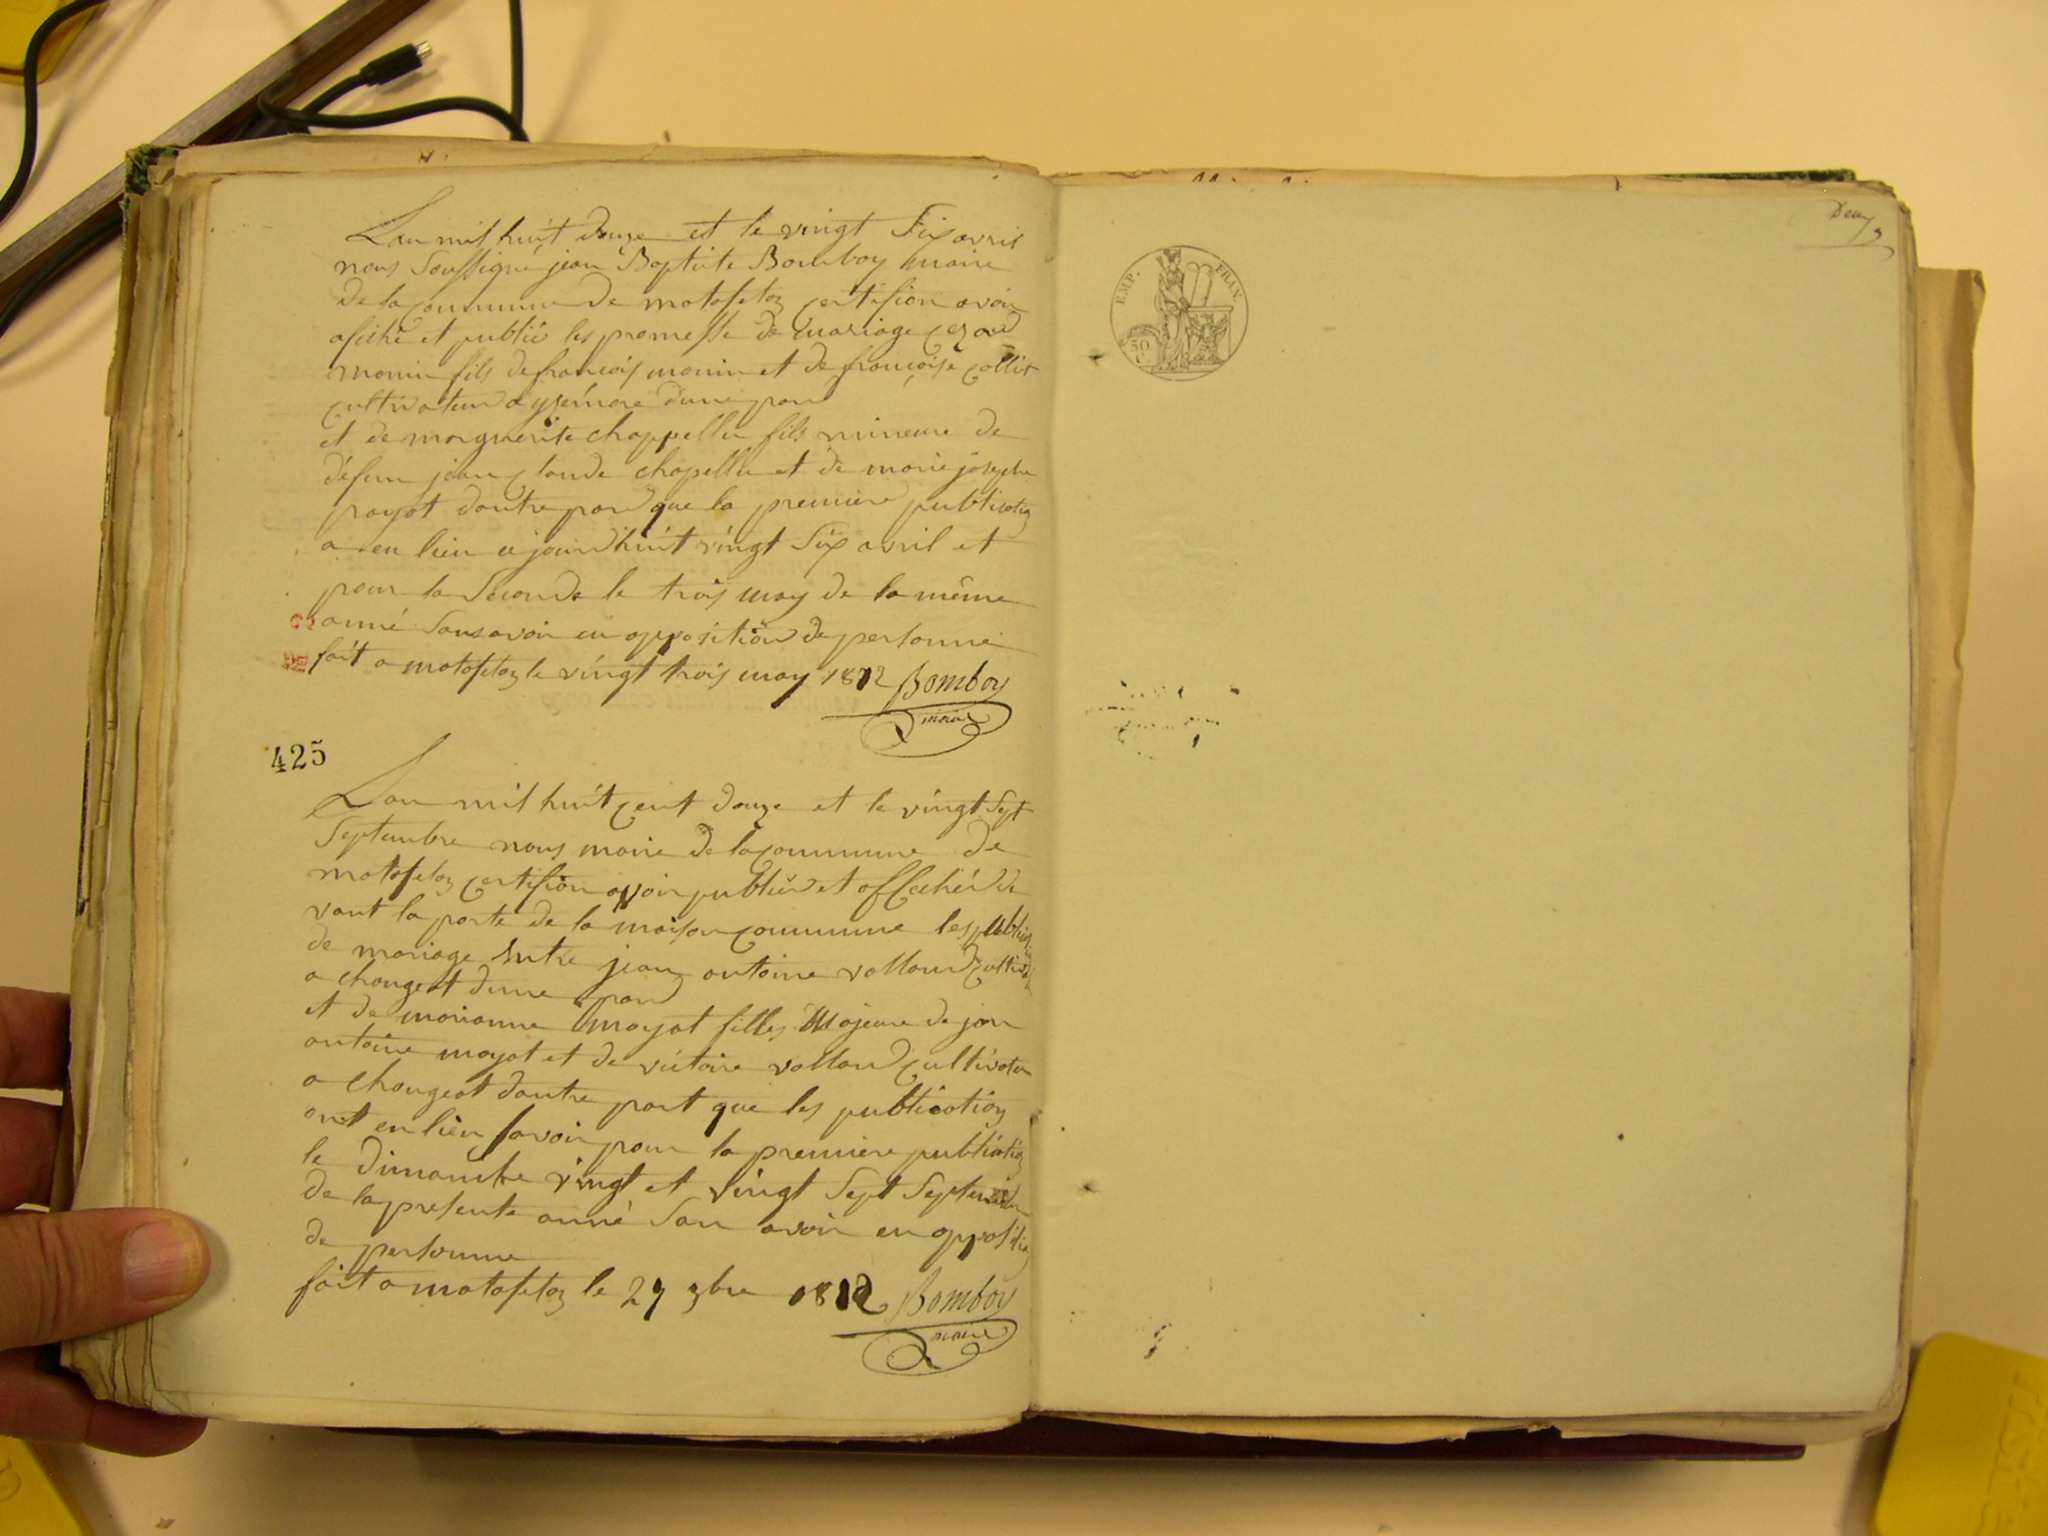 Lan mil huit douze et le vingt Six avril
nous Soussigné jean Baptiste Bomboy maire
de la commune de matafelon certifion avoir
afiché et publié les promesse de mariage
monin fils de francois monin et de françoise collet
cultivateur a ysernore dune part
et de marguerite chappellu fils mineure de
défun jean claude chapellu et de marie josephe
payot dautre part que la premiere publication
a eu lieu ajourdhuit vingt Six avril et
pour la Seconde le trois may de la même
anné Sans avoir eu opposition de personne
fait a matafelon le vingt trois may 1812 Bomboy
maire
425
Lan mil huit cent douze et le vingt Sept
Septembre nous maire de la commune de
matafelon certifion avoir publier et affiché de
vant la porte de la maison commune les publication
de mariage entre jean antoine volland cultivat
a changeat dune part
et de marianne mayat filles Majeure de jean
antoine mayat et de victoire volland cultivateur
a changeat dautre part que les publication
ont eu lieu savoir pour la premiere publication
le dimanche vingt et vingt Sept Septembre
de la presente anné San avoir eu oppositio
de personne
fait a matafelon le 27 bre 1812 Bomboy
maire
EMP. FRAN.
50
C.